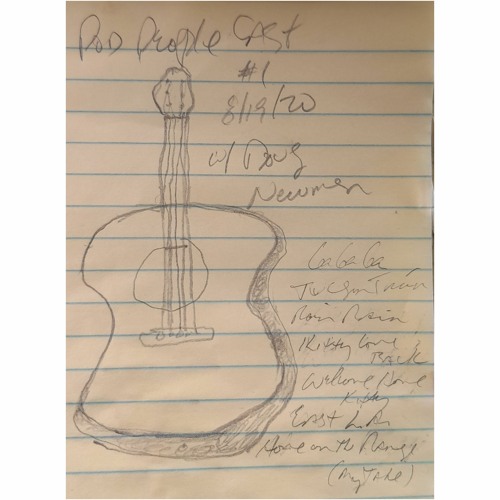 Pod People Cast
#1
8/19/20
w/ Doug
Newman
La La La
Train
Rain Rain
Kitty Come
Back
Welcome Home
Kitty
East L.A.
Home on the Range
(my take)